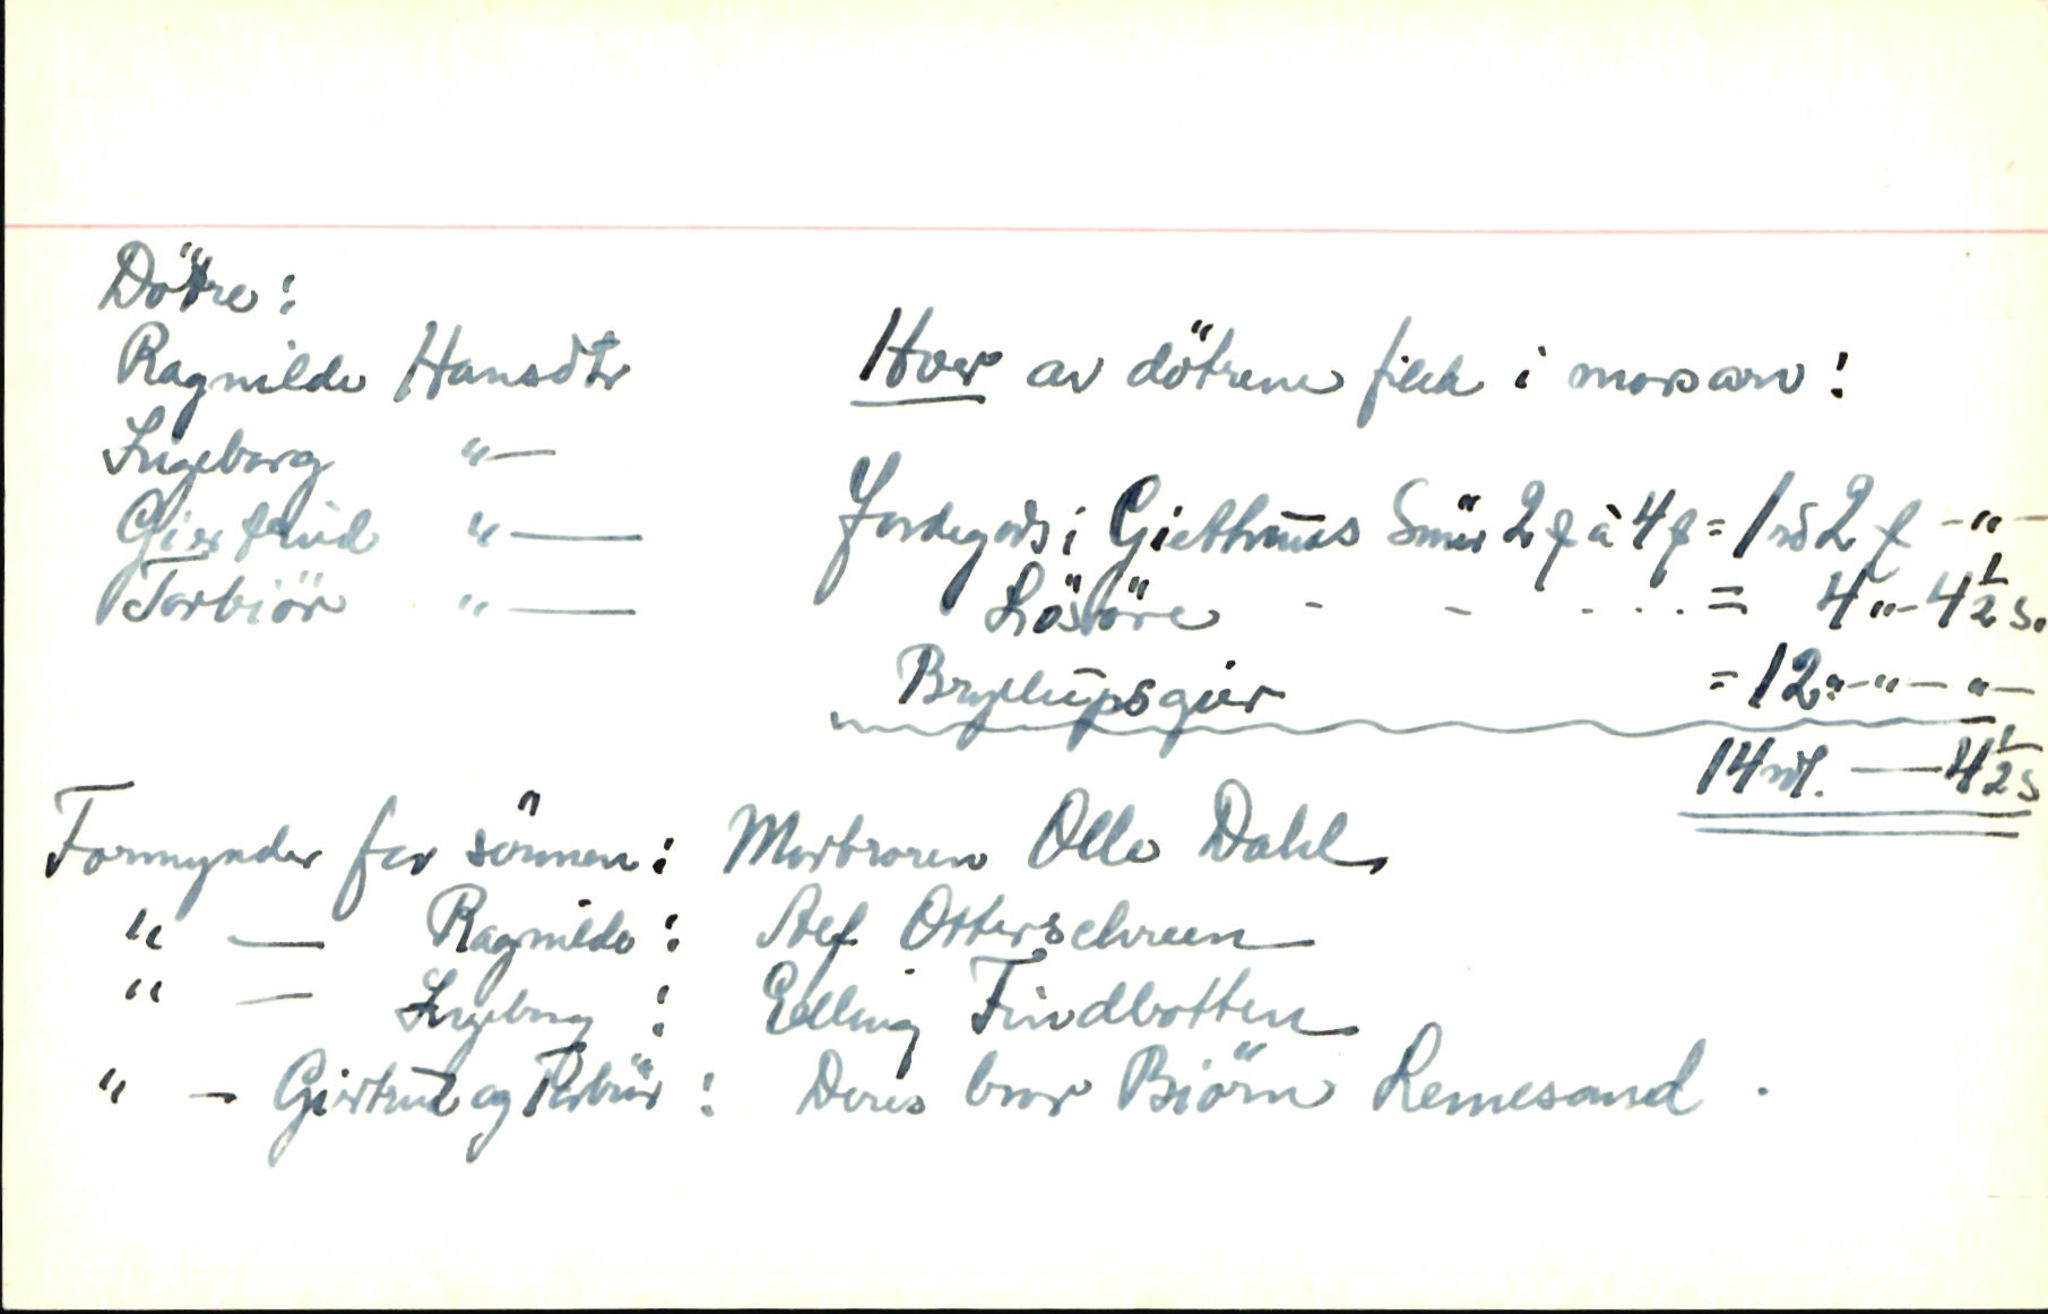 Dötre:
Ragnilde Hansdtr
Ingeborg "—
Giertrud "—
Torbiör "—
Hver av dötrene fikk i morsarv:
Jordegods i Giethuus Smör
Lösöre - - - . . . = 4 "- 4 1/2 s.
Bryllupsgier = 12 "-"-"-
14 — 4 1/2 s
Formynder for sönnen: Morbroren Olle Dahl,
" — Ragnilde: Alf Otterschreen
" — Ingeborg: Elling Findbotten
" — Giertrud og Torbiör: Deres bror Biörn Lemesand.